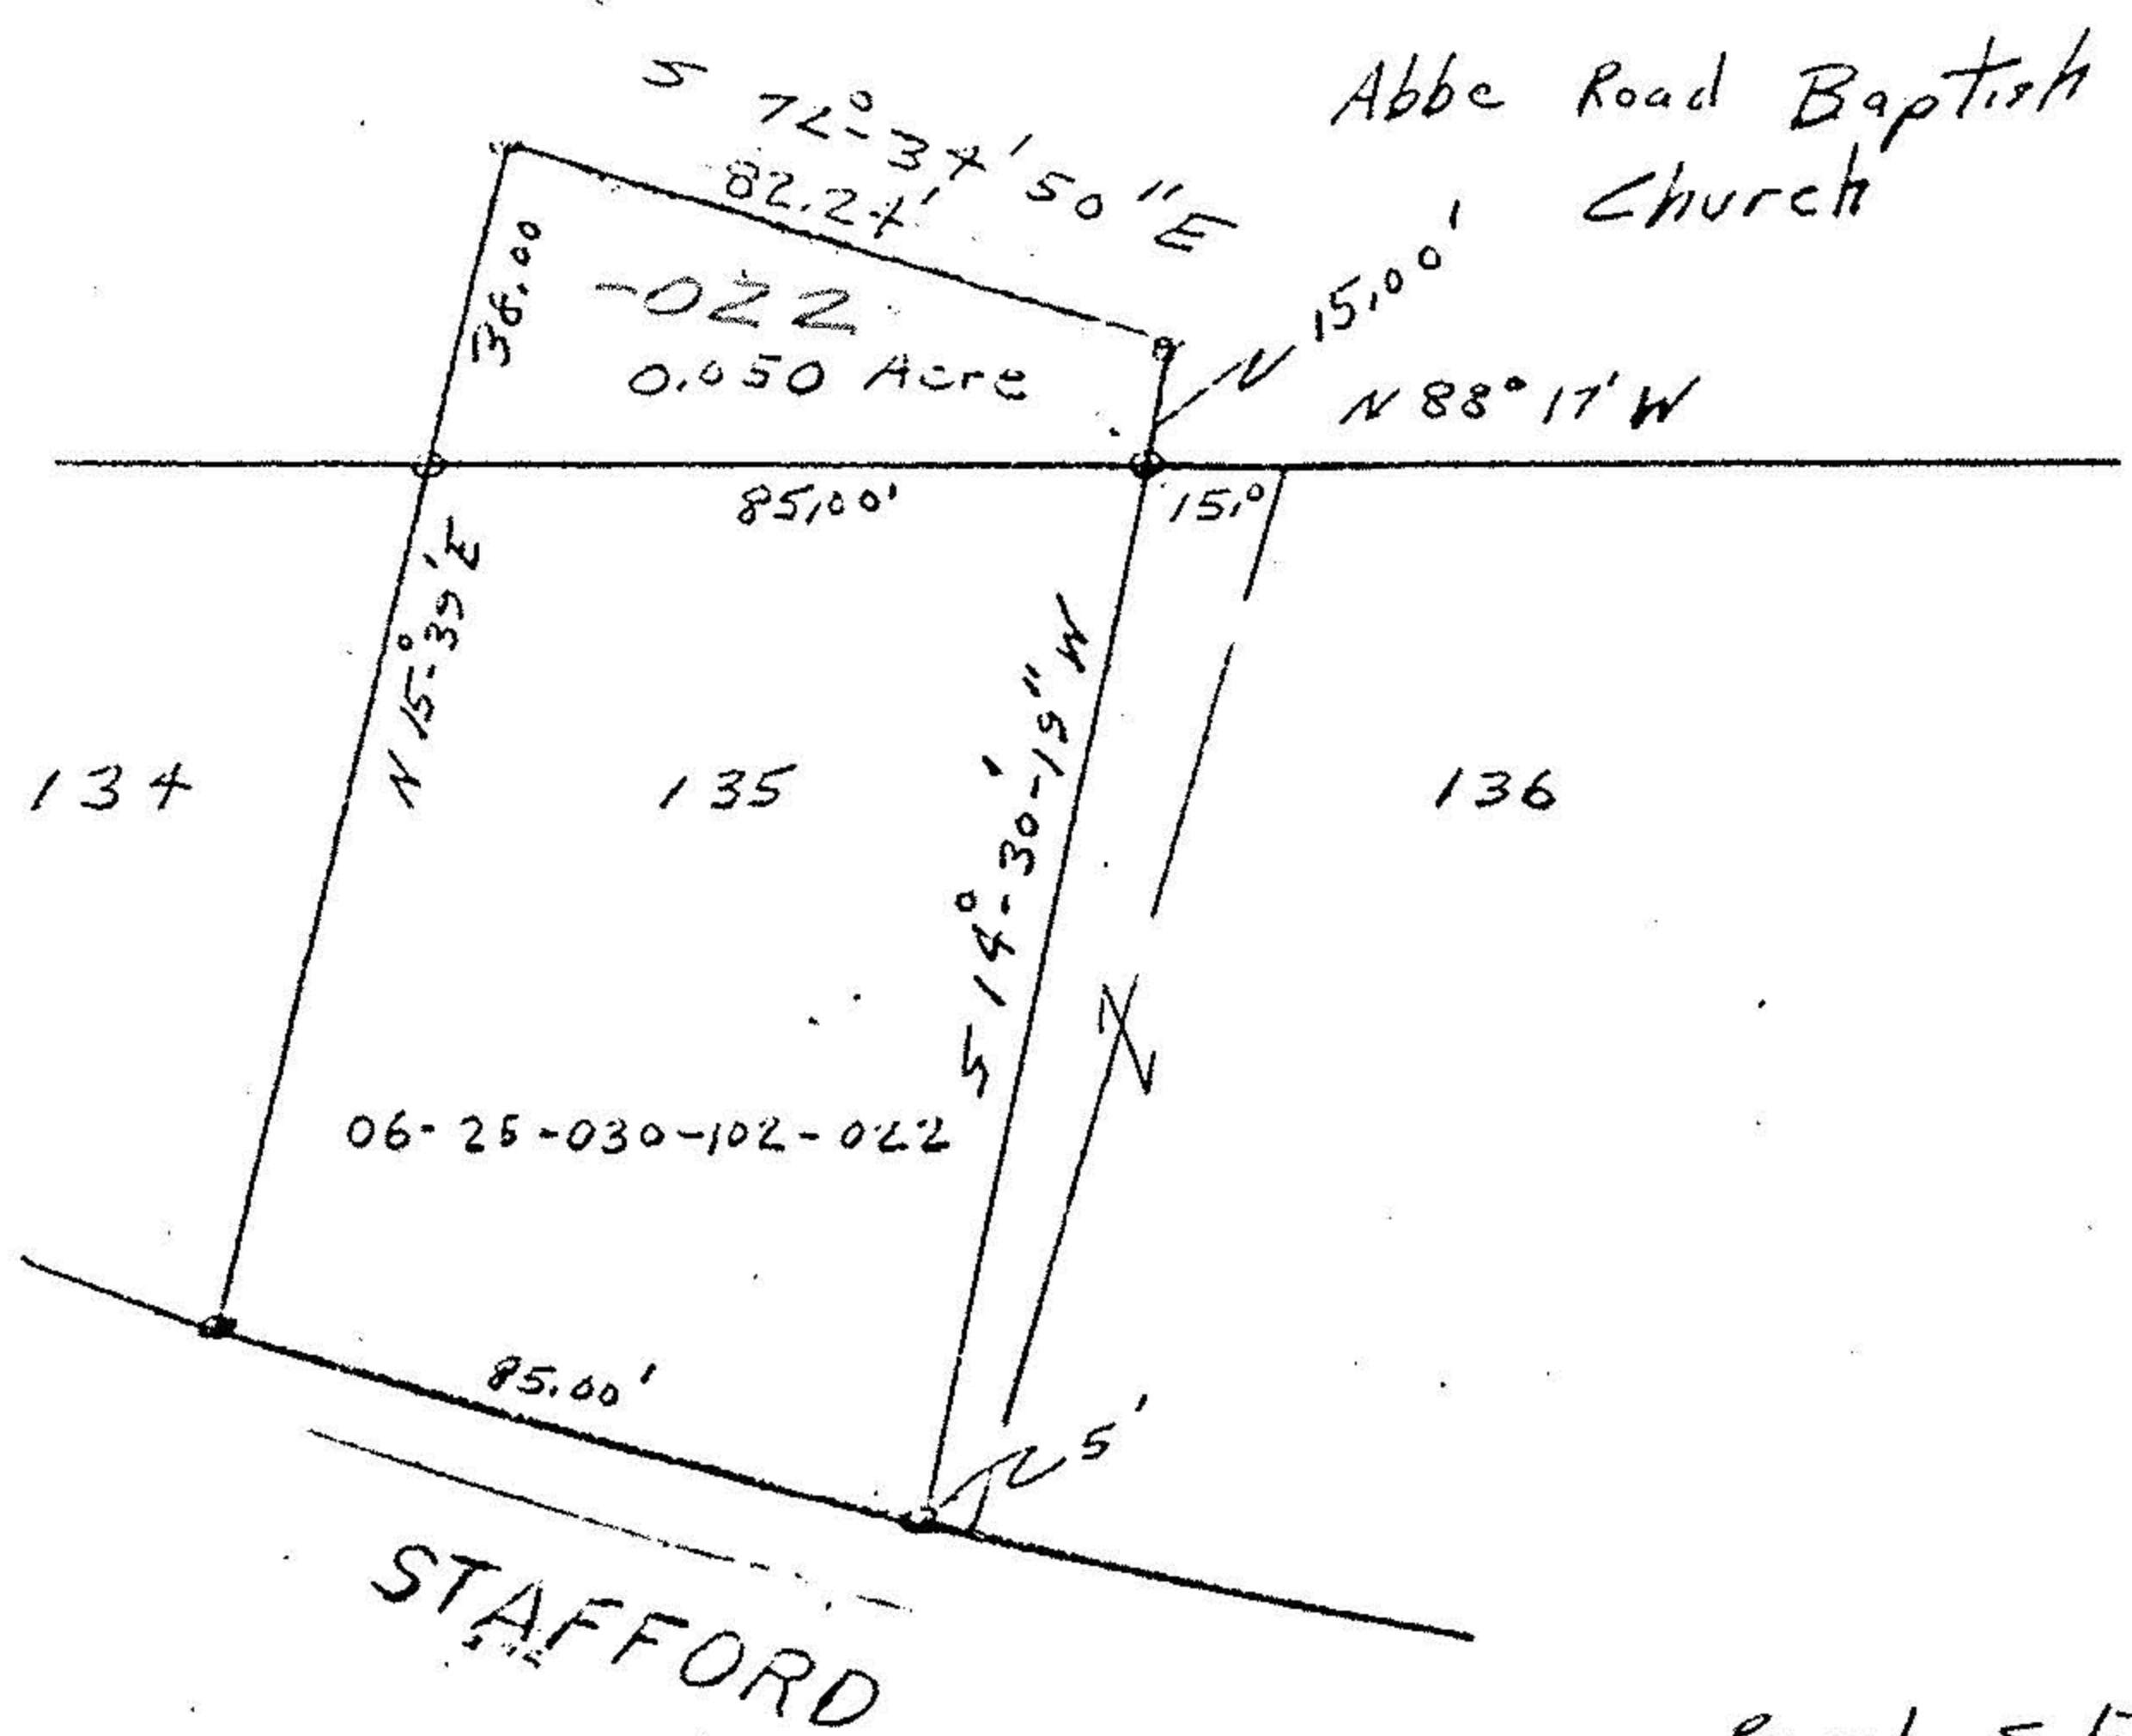 Abbe Road Baptish
Church
S 72°-34' 50" E
82.24'
38.00
-022
0.050 Acre
N 15.00'
N 88° 17' W
85.00'
15.0
N 15°-39' E
S 14°-30'-19" W
134
135
136
06-25-030-102-022
85.00'
5'
STAFFORD